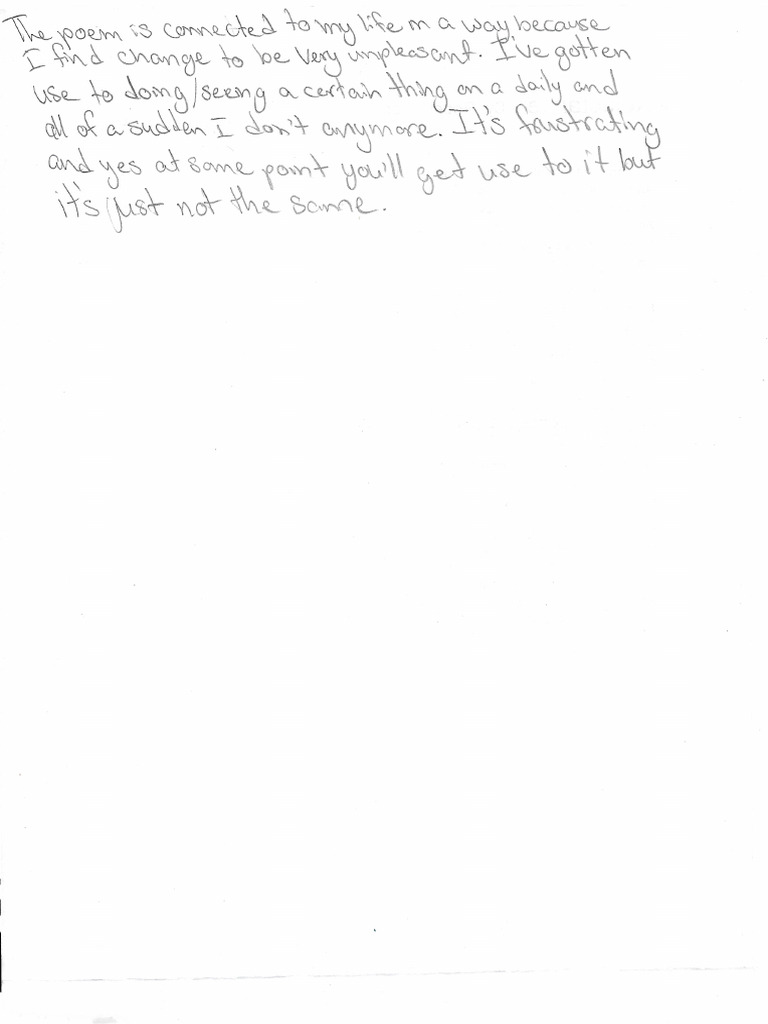 The poem is connected to my life in a way because
I find change to be very unpleasant. I've gotten
use to doing/seeing a certain thing on a daily and
all of a sudden I don't anymore. It's frustrating
and yes at some point you'll get use to it but
it's just not the same.